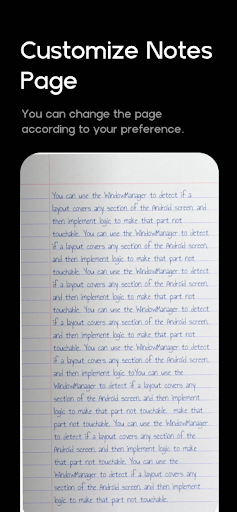 Customize Notes
Page
You can change the page
according to your preference.
You can use the WindowManager to detect if a
layout covers any section of the Android screen, and
then implement logic to make that part not
touchable. You can use the WindowManager to detect
if a layout covers any section of the Android screen,
and then implement logic to make that part not
touchable. You can use the WindowManager to detect
if a layout covers any section of the Android screen,
and then implement logic to make that part not
touchable. You can use the WindowManager to detect
if a layout covers any section of the Android screen,
and then implement logic to make that part not
touchable. You can use the WindowManager to detect
if a layout covers any section of the Android screen,
and then implement logic toYou can use the
WindowManager to detect if a layout covers any
section of the Android screen, and then implement
logic to make that part not touchable. make that
part not touchable. You can use the WindowManager
to detect if a layout covers any section of the
Android screen, and then implement logic to make
that part not touchable. You can use the
WindowManager to detect if a layout covers any
section of the Android screen, and then implement
logic to make that part not touchable.